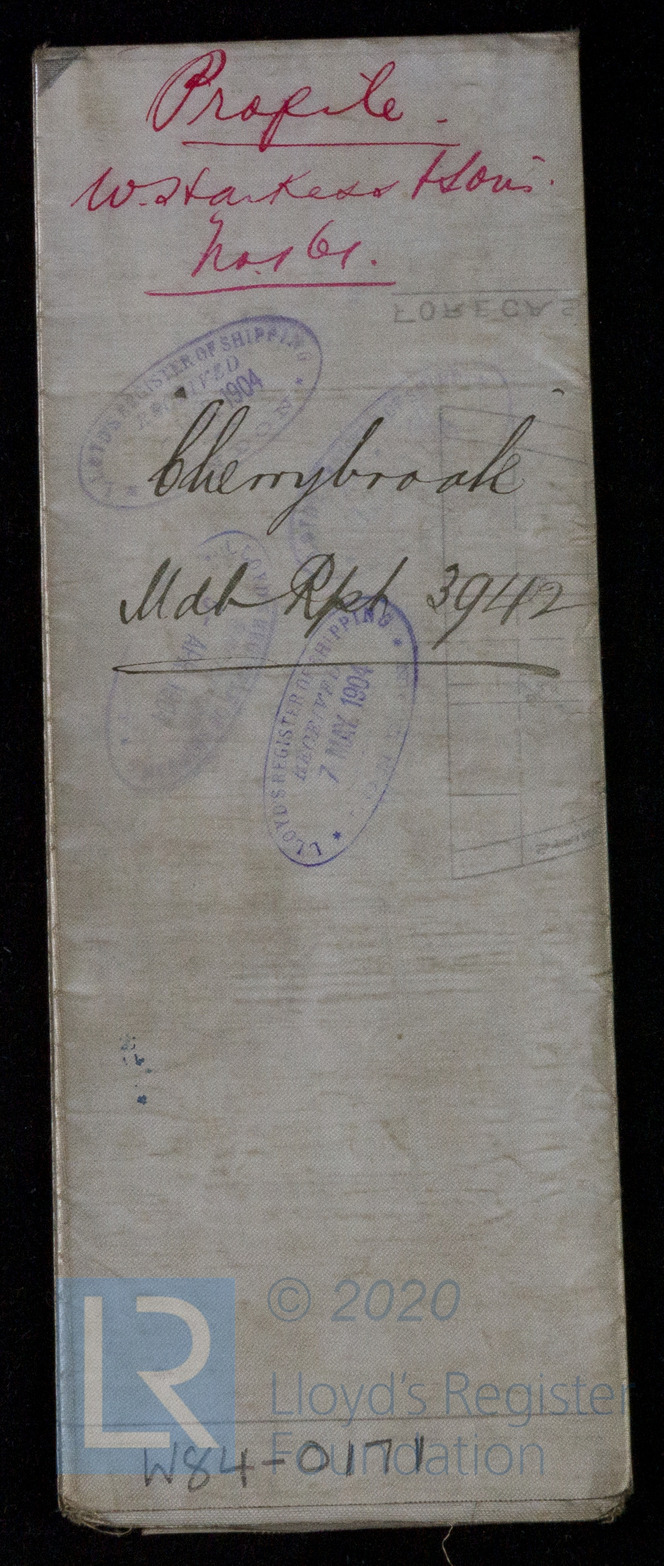 Profile.
W. Harkess & Sons.
No. 161.
FORECAS
LLOYD'S REGISTER OF SHIPPING
RECEIVED
1904
Cherrybrook
Mdb Rpt 3942
LLOYD'S REGISTER OF SHIPPING
RECEIVED
7 MAY 1904
LR
© 2020
Lloyd's Register
Foundation
W84-0171